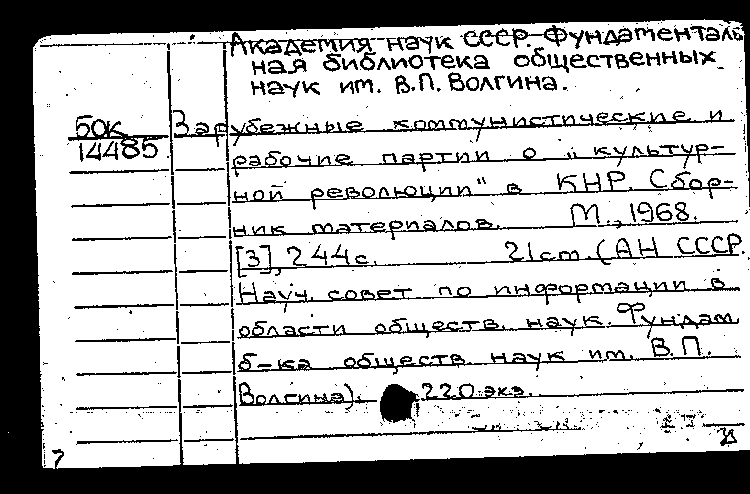 Академия наук СССР. Фундаменталь
ная библиотека общественных
наук им. В.П. Волгина.
бок Зарубежные коммунистические и
14485 рабочие партии о „культур-
ной революции" в КНР. Сбор-
ник материалов. М., 1968.
[3], 244с. 21см. (АН СССР.
Науч. совет по информации в
области обществ. наук. Фундам.
б-ка обществ. наук им. В.П.
Волгина). 220 экз.